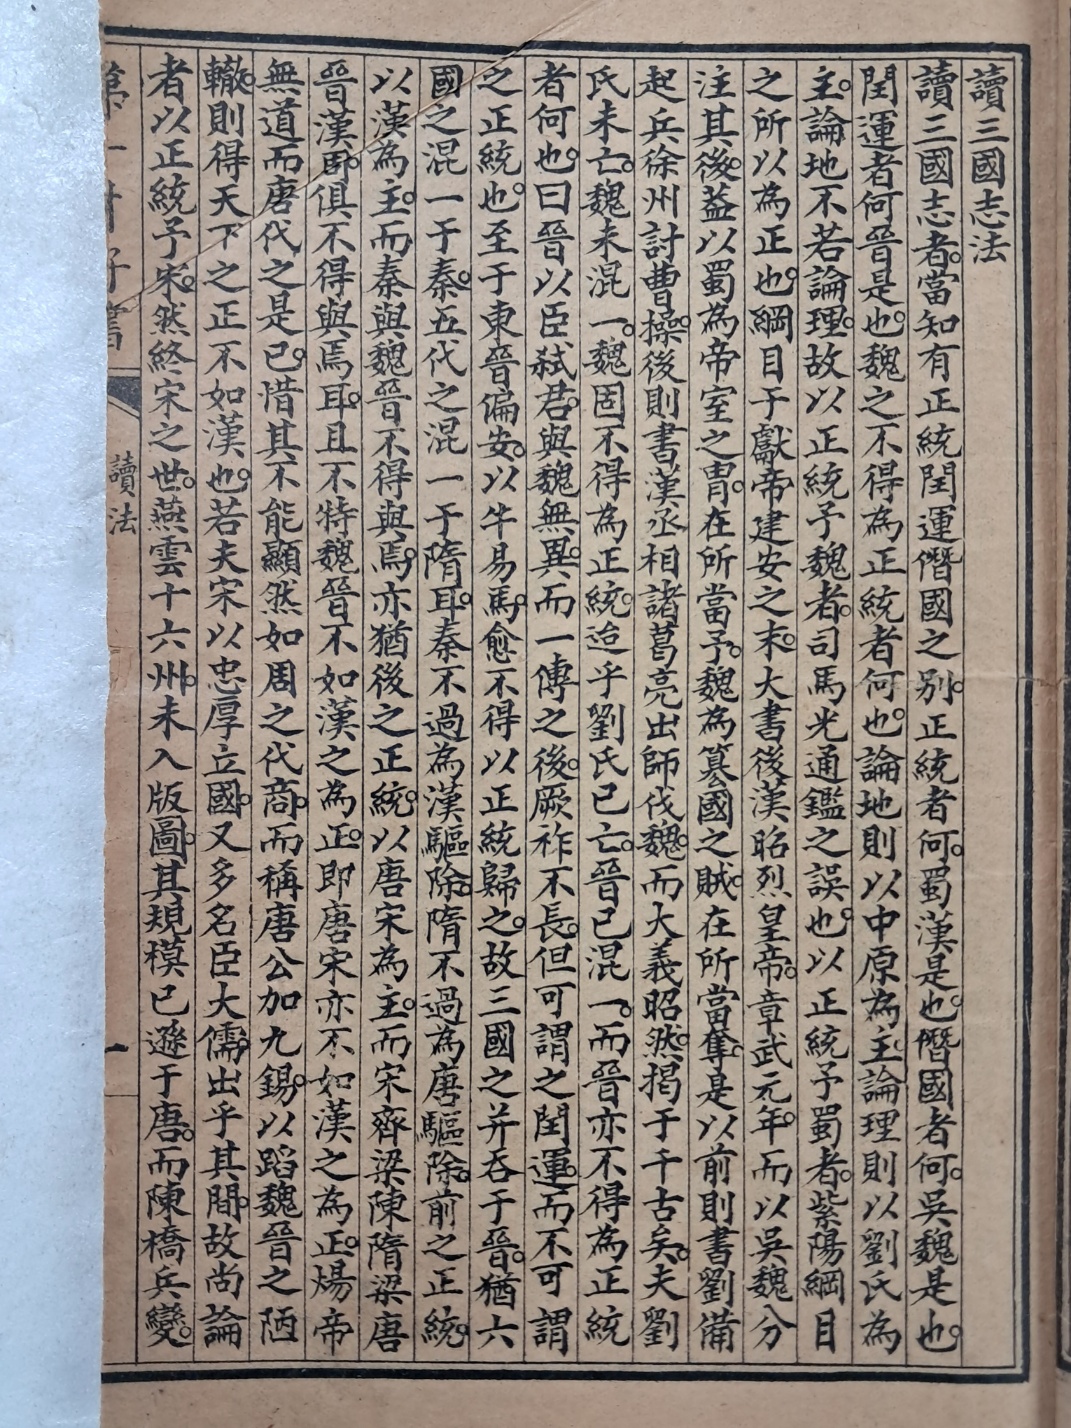 讀三國志法
讀三國志者。當知有正統閏運僭國之别。正統者何。蜀漢是也。僭國者何。吳魏是也。
閏運者何晉是也。魏之不得為正統者何也。論地則以中原為主。論理則以劉氏為
主。論地不若論理。故以正統予魏者。司馬光通鑑之誤也。以正統予蜀者。紫陽綱目
之所以為正也。綱目于獻帝建安之末。大書後漢昭烈皇帝。章武元年。而以吳魏分
注其後。葢以蜀為帝室之胄。在所當予。魏為篡國之賊。在所當奪。是以前則書劉備
起兵徐州討曹操。後則書漢丞相諸葛亮出師伐魏。而大義昭然。揭于千古矣。夫劉
氏未亡。魏未混一。魏固不得為正統。迨乎劉氏已亡。晉已混一。而晉亦不得為正統
者何也。曰晉以臣弒君。與魏無異。而一傳之後。厥祚不長。但可謂之閏運。而不可謂
之正統也。至于東晉偏安。以牛易馬。愈不得以正統歸之。故三國之并吞于晉。猶六
國之混一于秦。五代之混一于隋耳。秦不過為漢驅除。隋不過為唐驅除。前之正統。
以漢為主。而秦與魏晉不得與焉。亦猶後之正統。以唐宋為主。而宋齊梁陳隋梁唐
晉漢周。俱不得與焉耳。且不特魏晉不如漢之為正。即唐宋亦不如漢之為正。煬帝
無道而唐代之是已。惜其不能顯然如周之代商。而稱唐公加九錫。以蹈魏晉之陋
轍。則得天下之正不如漢也。若夫宋以忠厚立國。又多名臣大儒。出乎其間。故尚論
者以正統予宋。然終宋之世。燕雲十六州。未入版圖。其規模已遜于唐。而陳橋兵變。
讀法
一